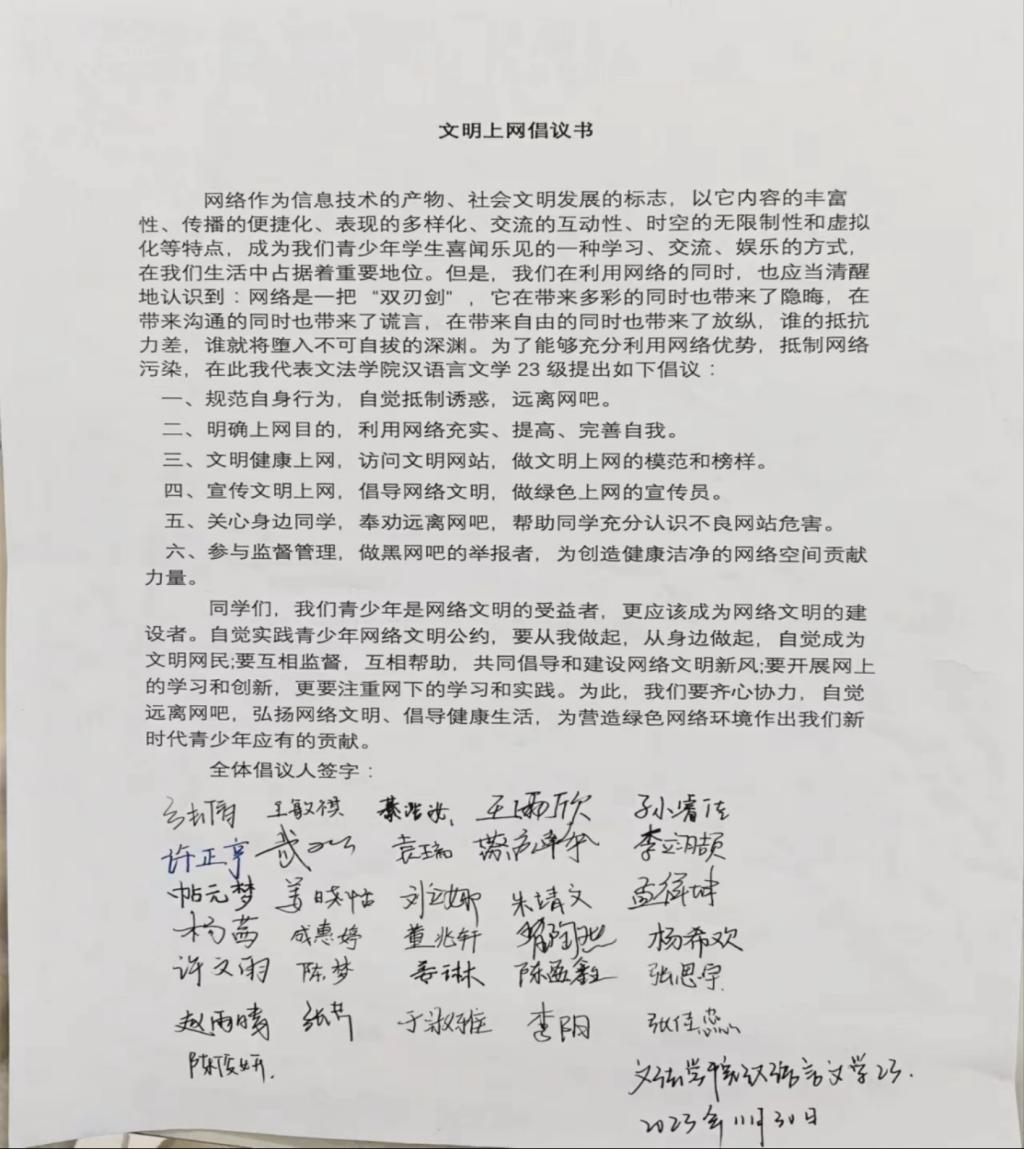 文明上网倡议书
网络作为信息技术的产物、社会文明发展的标志，以它内容的丰富
性、传播的便捷化、表现的多样化、交流的互动性、时空的无限制性和虚拟
化等特点，成为我们青少年学生喜闻乐见的一种学习、交流、娱乐的方式，
在我们生活中占据着重要地位。但是，我们在利用网络的同时，也应当清醒
地认识到：网络是一把“双刃剑”，它在带来多彩的同时也带来了隐晦，在
带来沟通的同时也带来了谎言，在带来自由的同时也带来了放纵，谁的抵抗
力差，谁就将堕入不可自拔的深渊。为了能够充分利用网络优势，抵制网络
污染，在此我代表文法学院汉语言文学 23 级提出如下倡议：
一、规范自身行为，自觉抵制诱惑，远离网吧。
二、明确上网目的，利用网络充实、提高、完善自我。
三、文明健康上网，访问文明网站，做文明上网的模范和榜样。
四、宣传文明上网，倡导网络文明，做绿色上网的宣传员。
五、关心身边同学，奉劝远离网吧，帮助同学充分认识不良网站危害。
六、参与监督管理，做黑网吧的举报者，为创造健康洁净的网络空间贡献
力量。
同学们，我们青少年是网络文明的受益者，更应该成为网络文明的建
设者。自觉实践青少年网络文明公约，要从我做起，从身边做起，自觉成为
文明网民;要互相监督，互相帮助，共同倡导和建设网络文明新风;要开展网上
的学习和创新，更要注重网下的学习和实践。为此，我们要齐心协力，自觉
远离网吧，弘扬网络文明、倡导健康生活，为营造绿色网络环境作出我们新
时代青少年应有的贡献。
全体倡议人签字：
王敏祺 王雨欣 孙小睿佳
许正亨 袁瑞 李翊颉
帖元梦 姜晓怡 刘立娜 朱靖文 孟祥坤
杨茜 成惠婷 董兆轩 翟陶然 杨希欢
许文雨 陈梦 姜琳林 陈亚鑫 张思宇
赵雨晴 于淑雅 李阳 张佳蕊
陈俊妍
文法学院汉语言文学23.
2023年11月30日